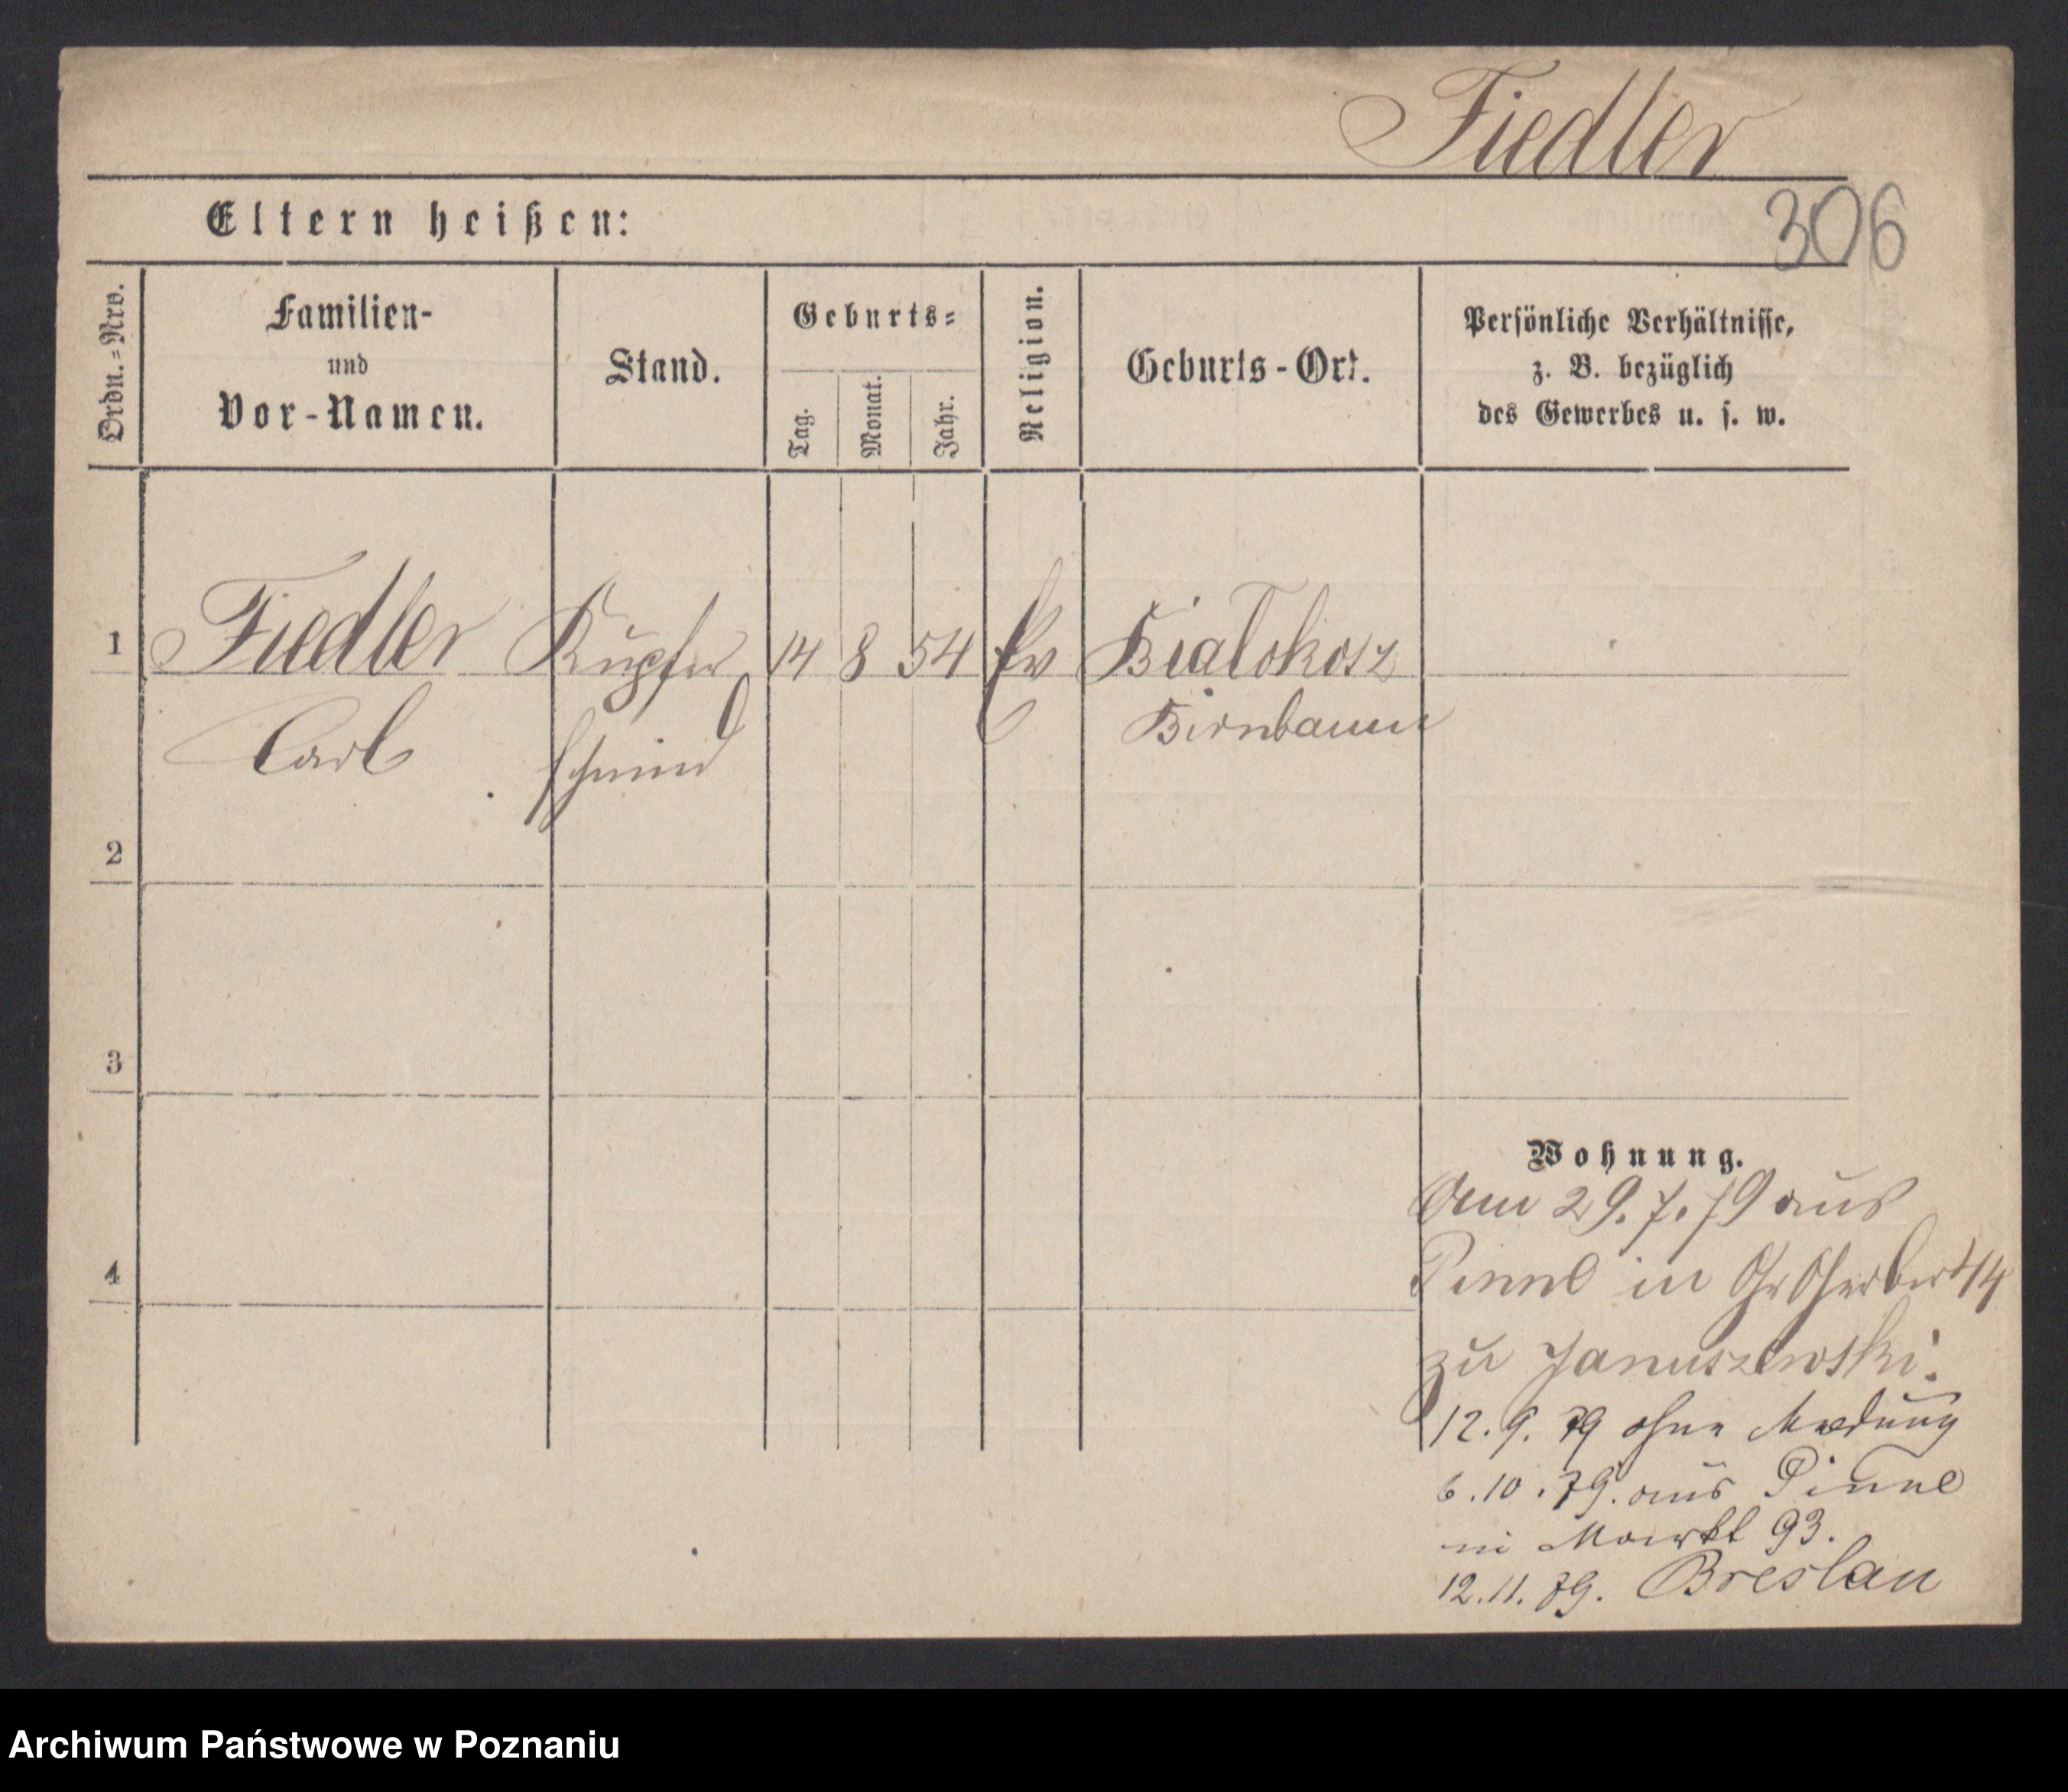 Fiedler
306
Eltern heißen:
Ordn.-Nro.
Familien-
und
Vor-Namen.
Stand.
Geburts-
Tag.
Monat.
Jahr.
Religion.
Geburts-Ort.
Persönliche Verhältnisse,
z. B. bezüglich
des Gewerbes u. s. w.
1 Fiedler Kupfer 14 8 54 Ev Bialokosz
Carl schmied Birnbaum
2
3
4
Wohnung.
Am 29.7.79 aus
Pinne in Gr Gerberst 14
zu Januszewski.
12.9.79 ohne Meldung
6.10.79. aus Pinne
in Markt 93.
12.11.79. Breslau
Archiwum Państwowe w Poznaniu